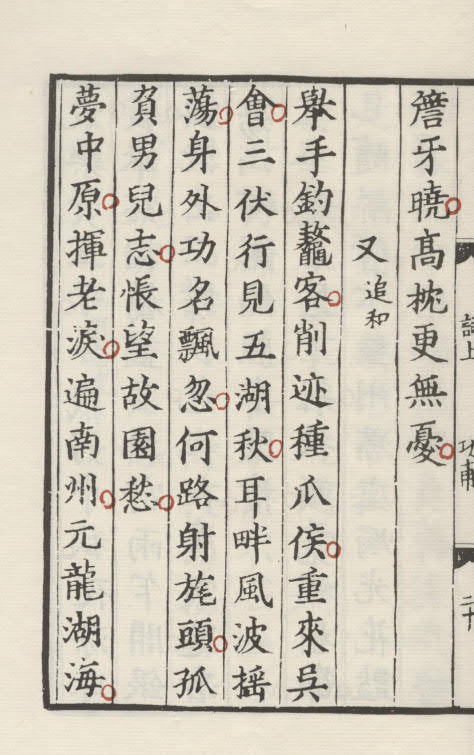 簷牙曉高枕更無憂
又追和
舉手釣鼇客削迹種瓜侯重來吳
會三伏行見五湖秋耳畔風波搖
蕩身外功名飄忽何路射旄頭孤
負男兒志悵望故園愁
夢中原揮老淚遍南州元龍湖海